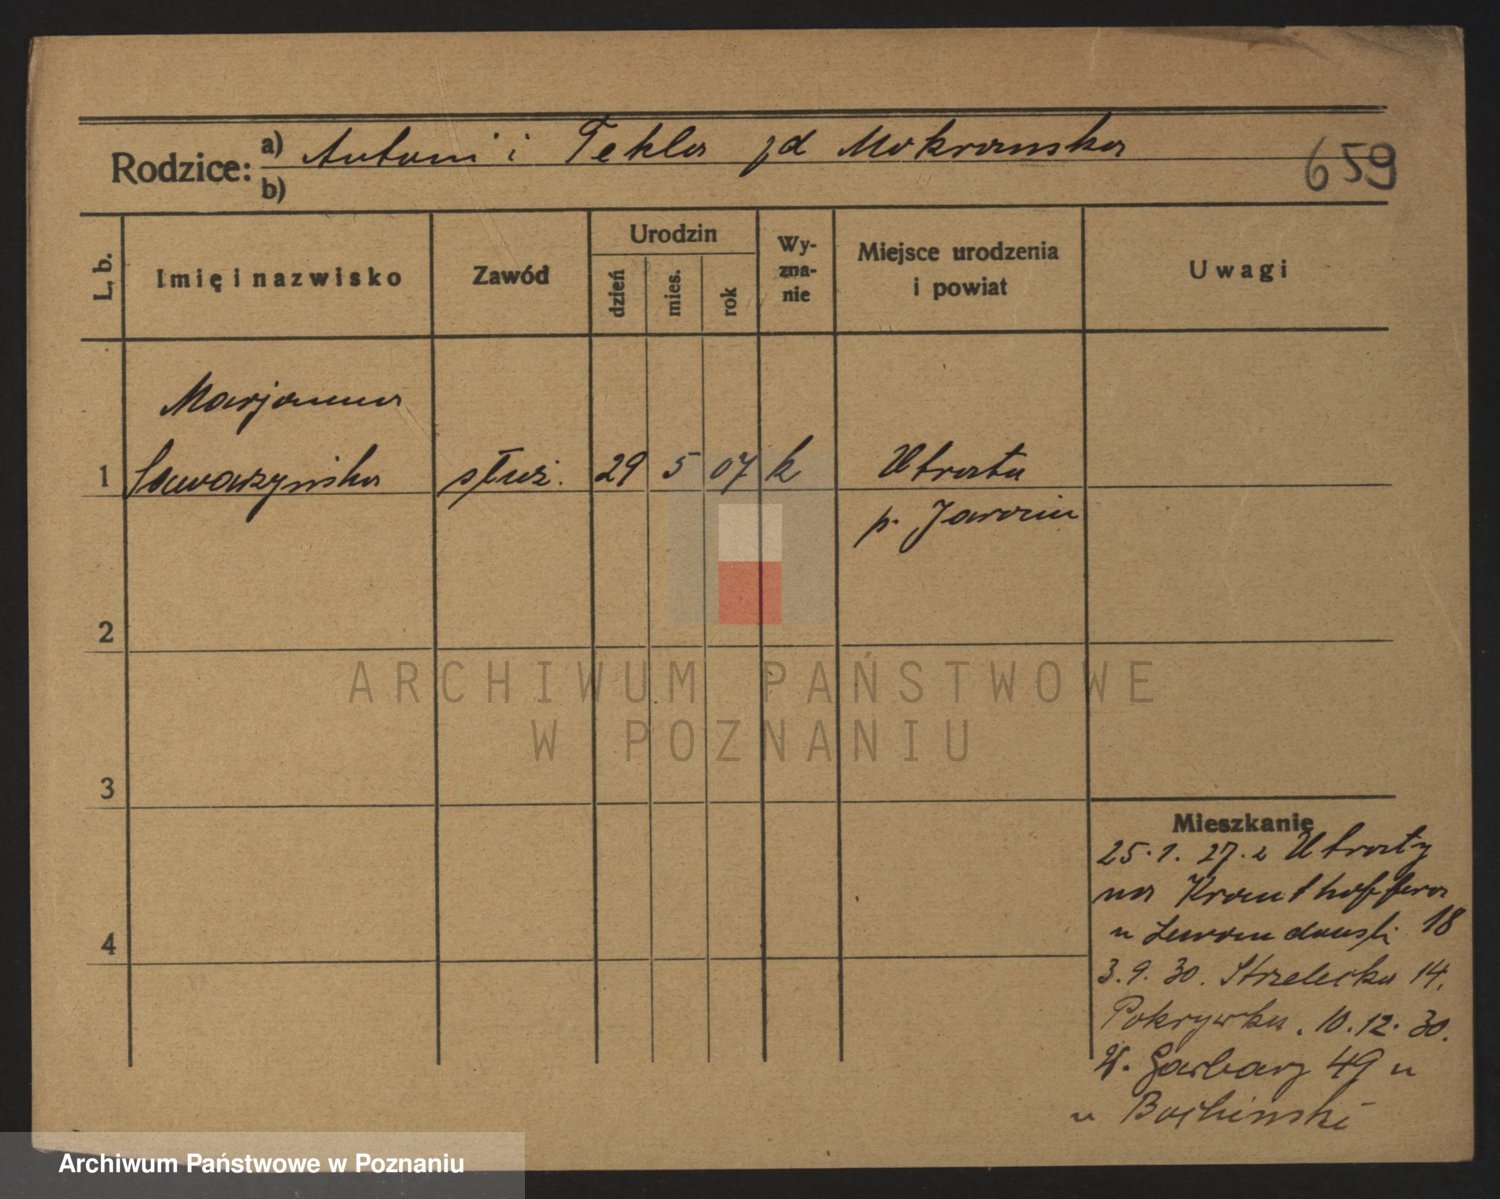 Rodzice: a) Antoni i Tekla zd Mokrauska
b)
659
L. b.
Imię i nazwisko
Zawód
Urodzin
dzień
mies.
rok
Wy-
zna-
nie
Miejsce urodzenia
i powiat
Uwagi
Marjanna
1 służ. 29 5 07 k Utrata
p. Jarocin
2
3
4
Mieszkanie
25.1.27. z Utraty
na
u 18
3.9.30. Strzelecka 14.
Pokrywka. 10.12.30.
W. Garbary 49 u
u
ARCHIWUM PAŃSTWOWE
W POZNANIU
Archiwum Państwowe w Poznaniu